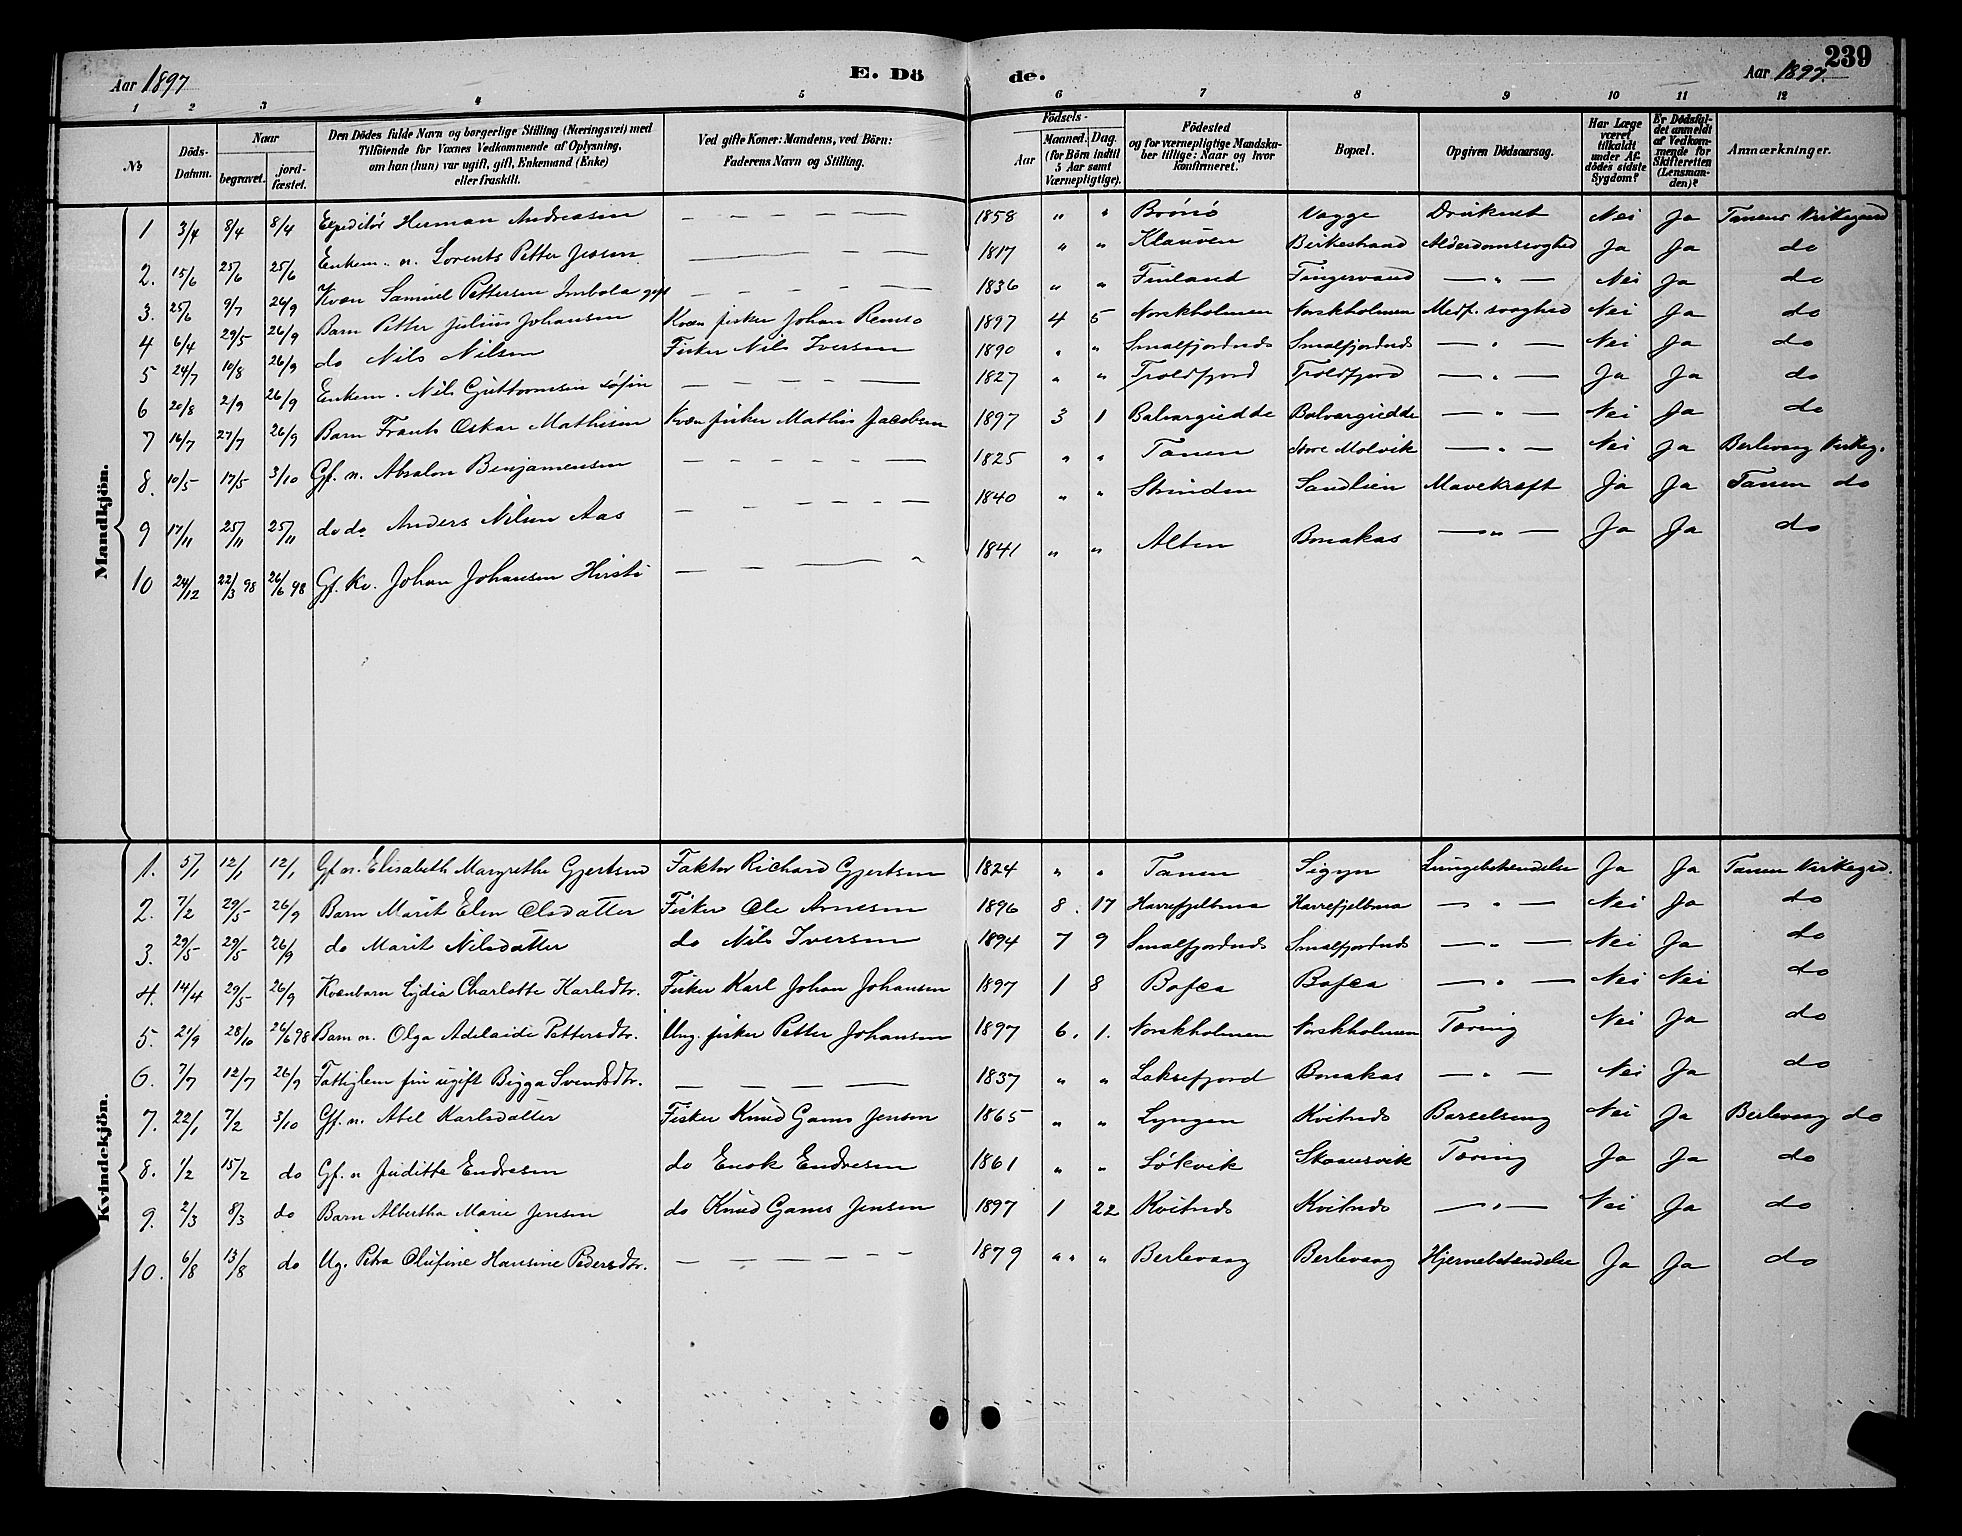 239
Aar 1897 E. Dö de. Aar 1897.
1 2 3 4 5 6 7 8 9 10 11 12
№ Döds-Datum. Naar begravet. jordfæstet. Den Dödes fulde Navn og borgerlige Stilling (Næringsvei) med Tilföiende for Voxnes Vedkommende af Oplysning, om han (hun) var ugift, gift, Enkemand (Enke) eller fraskilt. Ved gifte Koner: Mandens, ved Börn: Faderens Navn og Stilling. Födsels- Aar Maaned. Dag. (for Börn indtil 5 Aar samt Værnepligtige). Födested og for værnepligtige Mandskaber tillige: Naar og hvor konfirmeret. Bopæl. Opgiven Dödsaarsag. Har Læge været tilkaldt under Afdödes sidste Sygdom? Er Dödsfaldet anmeldt af Vedkommende for Skifteretten (Lensmanden)? Anmærkninger.
Mandkjön.
1 3/4 8/4 8/4 Expeditör Herman Andreasen — — — — — 1858 " " Brönö Vagge Druknet Nei Ja Tanens Kirkegaard
2. 15/6 25/6 25/6 Enkem. n. Lorents Petter Jessen — — — — 1817 " " Klauven Birkestrand Alderdomssvaghed Ja Ja do
3. 25/6 9/7 26/9 Kvæn Samuel Pettersen Imbola gift — — — — — 1836 " " Finland Fingervand — " — Nei Ja do
4 6/4 29/5 26/9 Barn Petter Julius Johansen Kvæn fisker Johan Remso 1897 4 5 Norskholmen Norskholmen Medf. svaghed Nei Ja do
5 24/7 10/8 26/9 do Nils Nilsen Fisker Nils Iversen 1890 " " Smalfjordnds Smalfjordnds — " — Nei Ja do
6 20/8 2/9 26/9 Enkem. Nils Guttormsen söfin — — — — — 1827 " " Troldfjord Troldfjord — " — Ja Ja do
7 16/7 27/7 26/9 Barn Frants Oskar Mathisen Kvæn fisker Mathis Jacobsen 1897 3 1 Balvargiedde Balvargiedde — " — Nei Ja do
8. 10/5 17/5 3/10 Gf. n. Absalon Benjamensen — — — — — — 1825 " " Tanen Store Molvik — " — Nei Ja Berlevaag Kirkeg.
9 17/11 25/11 25/11 do do Anders Nilsen Aas — — — — — — 1840 " " Strinden Sandlien Mavekræft Ja Ja Tanen do
10 24/12 22/3 98 26/6 98 Gf. Kv. Johan Johansen Hirsti — — — " 1841 " " Alten Bonakas — " — Ja Ja do
Kvindekjön.
1. 5/1 12/1 12/1 Gf. n. Elisabeth Margrethe Gjertsen Faktor Richard Gjertsen 1824 " " Tanen Sigyn Lungebetændelse Ja Ja Tanen Kirkegrd.
2. 7/2 29/5 26/9 Barn Marit Elen Olsdatter Fisker Ole Arnesen 1896 8. 17 Harrefjelbma Harrefjelbma — " — Nei Ja do
3. 29/5 29/5 26/9 do Marit Nilsdatter do Nils Iversen 1894 7 9 Smalfjordnds Smalfjordnds — " — Nei Ja do
4. 14/4 29/5 26/9 Kvænbarn Lydia Charlotte Karlsdtr. Fisker Karl Johan Johansen 1897 1 8 Bofca Bofca — " — Nei Nei do
5. 21/9 28/10 26/6 98 Barn n. Olga Adelaide Pettersdtr. Ung. fisker Petter Johansen 1897 6. 1. Norskholmen Norskholmen Tæring Nei Ja do
6. 7/7 12/7 26/9 Fattiglem fin ugift Bigga Svendsdtr. — — — — 1837 " " Laksefjord Bonakas — " — Nei Ja do
7. 22/1 7/2 3/10 Gf. n. Abel Karlsdatter Fisker Knud Gams Jensen 1865 " " Lyngen Kvitnds Barselseng Nei Ja Berlevaag do
8. 1/2 15/2 do Gf. n Juditha Endresen do Enok Endresen 1861 " " Lökvik Skaansvik Tæring Ja Ja do
9. 2/3 8/3 do Barn Albertha Marie Jensen do Knud Gams Jensen 1897 1 22 Kvitnds Kvitnds — " — Nei Ja do
10. 6/8 13/8 do Ug. Petra Olufine Hansine Pedersdtr. — — — — — 1879 " " Berlevaag Berlevaag Hjernebetændelse Ja Ja do